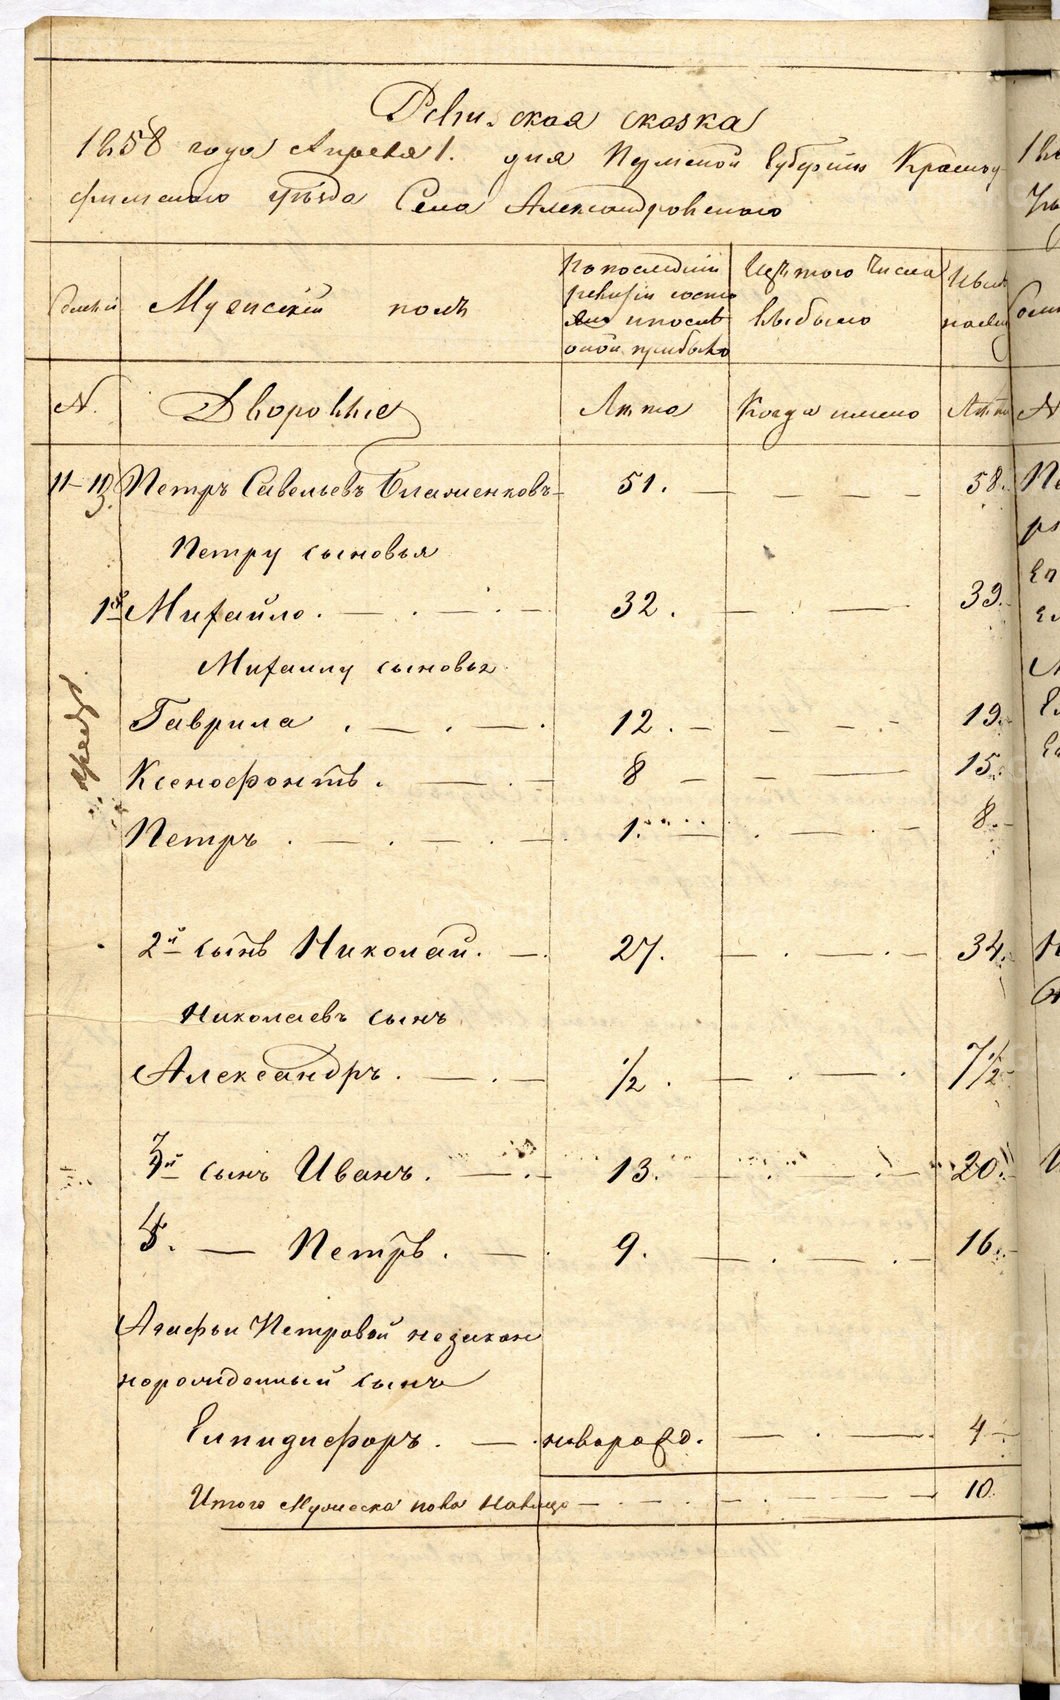 Ревизская сказка
1858 года Апреля 1. дня Пермской Губернии Красноу
фимского уѣзда Села Александровского
Мужескій полъ
По последней
ревизіи состо
яло и после
оной прибыло
Изъ того числа
выбыло
Ныне
N.
Дворовые
Лѣта
Когда имено
Лѣта
11 – 13
Петръ Савельевъ Бламенковъ – 51. – – – – 58.
Петру сыновья
1й Михайло. – . – . – 32. – . – 39.
Михаилу сыновья
Гаврила . – . – . 12. – – – – 19.
Ксенофонтъ . – – 8 – – – 15.
Петръ . – . – . – . 1. – . – . – 8. –
2й сынъ Николай. – . 27. – . – . – 34.
Николаевъ сынъ
Александръ . – . – 1/2 . – . – . 7 1/2
3й сынъ Иванъ . – . – 13. – . – . – 20.
4. – Петръ . – . 9. – . – . – 16.
Агафьи Петровой незакон
норожденный сынъ
Елпидифоръ . – . новорожд. – . – . 4 –
Итого Мужеска пола налицо – . – . – . – 10.